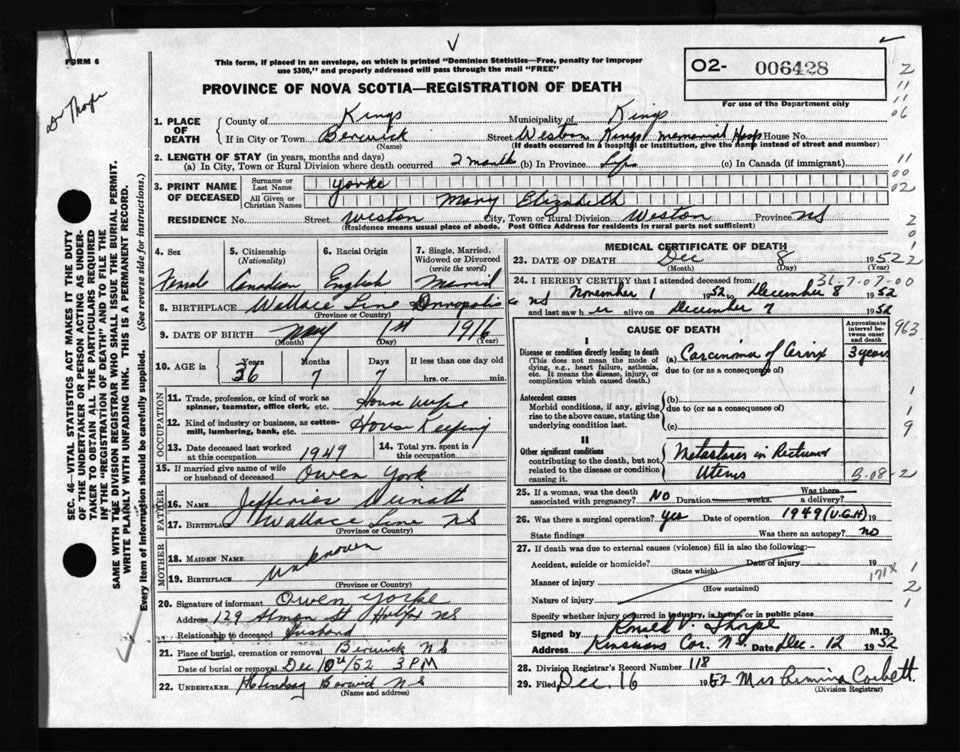 FORM 6
Dr Thorpe
This form, if placed in an envelope, on which is printed "Dominion Statistics—Free, penalty for improper
use $300," and properly addressed will pass through the mail "FREE"
PROVINCE OF NOVA SCOTIA—REGISTRATION OF DEATH
O2- 006428
For use of the Department only
1. PLACE OF DEATH
County of Kings Municipality of Kings
If in City or Town Berwick Street Western Kings Memorial Hosp House No.
(Name) (If death occurred in a hospital or institution, give the name instead of street and number)
2. LENGTH OF STAY (in years, months and days)
(a) In City, Town or Rural Division where death occurred 2 months (b) In Province Life (c) In Canada (if immigrant)
3. PRINT NAME OF DECEASED
Surname or Last Name Yorke
All Given or Christian Names Mary Elizabeth
RESIDENCE No. Street Weston City, Town or Rural Division Weston Province NS
(Residence means usual place of abode. Post Office Address for residents in rural parts not sufficient)
4. Sex 5. Citizenship (Nationality) 6. Racial Origin 7. Single, Married, Widowed or Divorced (write the word)
Female Canadian English Married
8. BIRTHPLACE Wallace Line Annapolis Co NS
(Province or Country)
9. DATE OF BIRTH May 1st 1916
(Month) (Day) (Year)
10. AGE in Years 36 Months 7 Days 7 If less than one day old hrs. or min.
OCCUPATION
11. Trade, profession, or kind of work as spinner, teamster, office clerk, etc. House Wife
12. Kind of industry or business, as cotton-mill, lumbering, bank, etc. Hous Keeping
13. Date deceased last worked at this occupation 1949 14. Total yrs. spent in this occupation
15. If married give name of wife or husband of deceased Owen York
FATHER
16. NAME Jefferies
17. BIRTHPLACE Wallace Line NS
(Province or Country)
MOTHER
18. MAIDEN NAME unknown
19. BIRTHPLACE
(Province or Country)
20. Signature of informant Owen Yorke
Address 129 Almon St Halifax NS
Relationship to deceased Husband
21. Place of burial, cremation or removal Berwick NS
Date of burial or removal Dec 10th/52 3 PM
22. UNDERTAKER Lindsay Berwick NS
(Name and address)
MEDICAL CERTIFICATE OF DEATH
23. DATE OF DEATH Dec 8 1952
(Month) (Day) (Year)
24. I HEREBY CERTIFY that I attended deceased from:
November 1 1952 to December 8 1952
and last saw her alive on December 7 1952
CAUSE OF DEATH
Approximate interval between onset and death
I
Disease or condition directly leading to death (a) Carcinoma of Cervix 3 years
(This does not mean the mode of dying, e.g., heart failure, asthenia, etc. It means the disease, injury, or complication which caused death.)
due to (or as a consequence of)
Antecedent causes
Morbid conditions, if any, giving rise to the above cause, stating the underlying condition last.
(b)
due to (or as a consequence of)
(c)
II
Other significant conditions contributing to the death, but not related to the disease or condition causing it.
Metastases in Rectum &
Uterus
25. If a woman, was the death associated with pregnancy? No Duration weeks. Was there a delivery?
26. Was there a surgical operation? Yes Date of operation 1949 (V.G.H) 19
State findings Was there an autopsy? no
27. If death was due to external causes (violence) fill in also the following:—
Accident, suicide or homicide? Date of injury 19
(State which)
Manner of injury
(How sustained)
Nature of injury
Specify whether injury occurred in industry, in home, or in public place
Signed by Thorpe M.D.
Address Kinsmans Cor. N.S. Date Dec. 12 1952
28. Division Registrar's Record Number 118
29. Filed Dec. 16 1952 Mrs Corbett
(Division Registrar)
SEC. 46—VITAL STATISTICS ACT MAKES IT THE DUTY
OF THE UNDERTAKER OR PERSON ACTING AS UNDER-
TAKER TO OBTAIN ALL THE PARTICULARS REQUIRED
IN THE "REGISTRATION OF DEATH" AND TO FILE THE
SAME WITH THE DIVISION REGISTRAR WHO SHALL ISSUE THE BURIAL PERMIT.
WRITE PLAINLY WITH UNFADING INK. THIS IS A PERMANENT RECORD.
Every item of Information should be carefully supplied. (See reverse side for instructions.)
2
11
06
11
00
02
2
0
2
31-7-07-00
963
1
1
9
B-08-2
171X
1
2
1